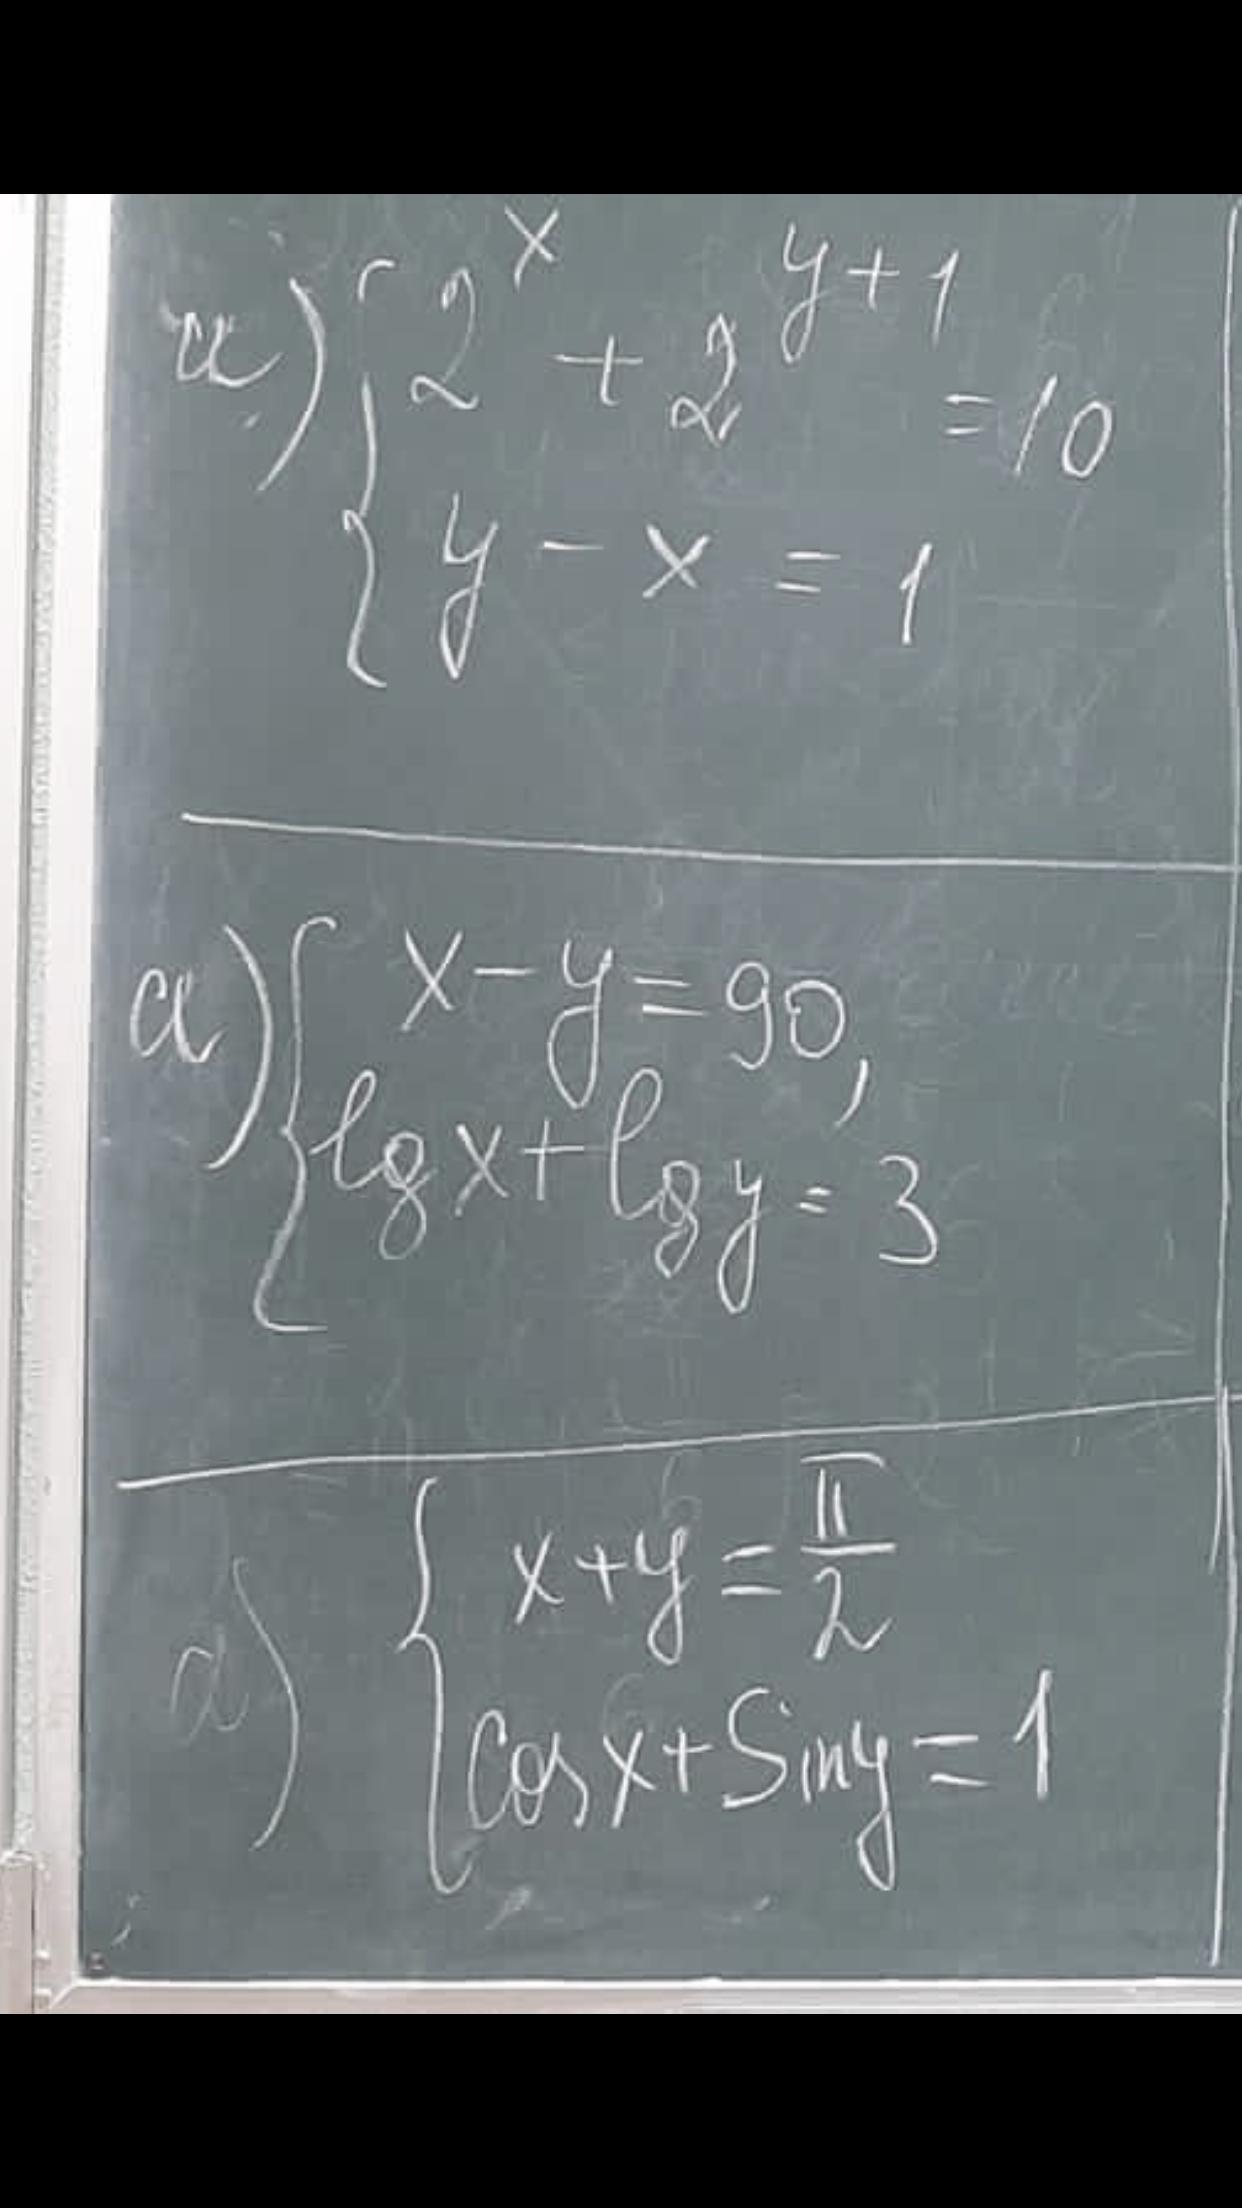 а) { 2^x + 2^(y+1) = 10
y - x = 1
а) { x - y = 90,
lg x + lg y = 3
а) { x + y = π/2
cos x + Sin y = 1